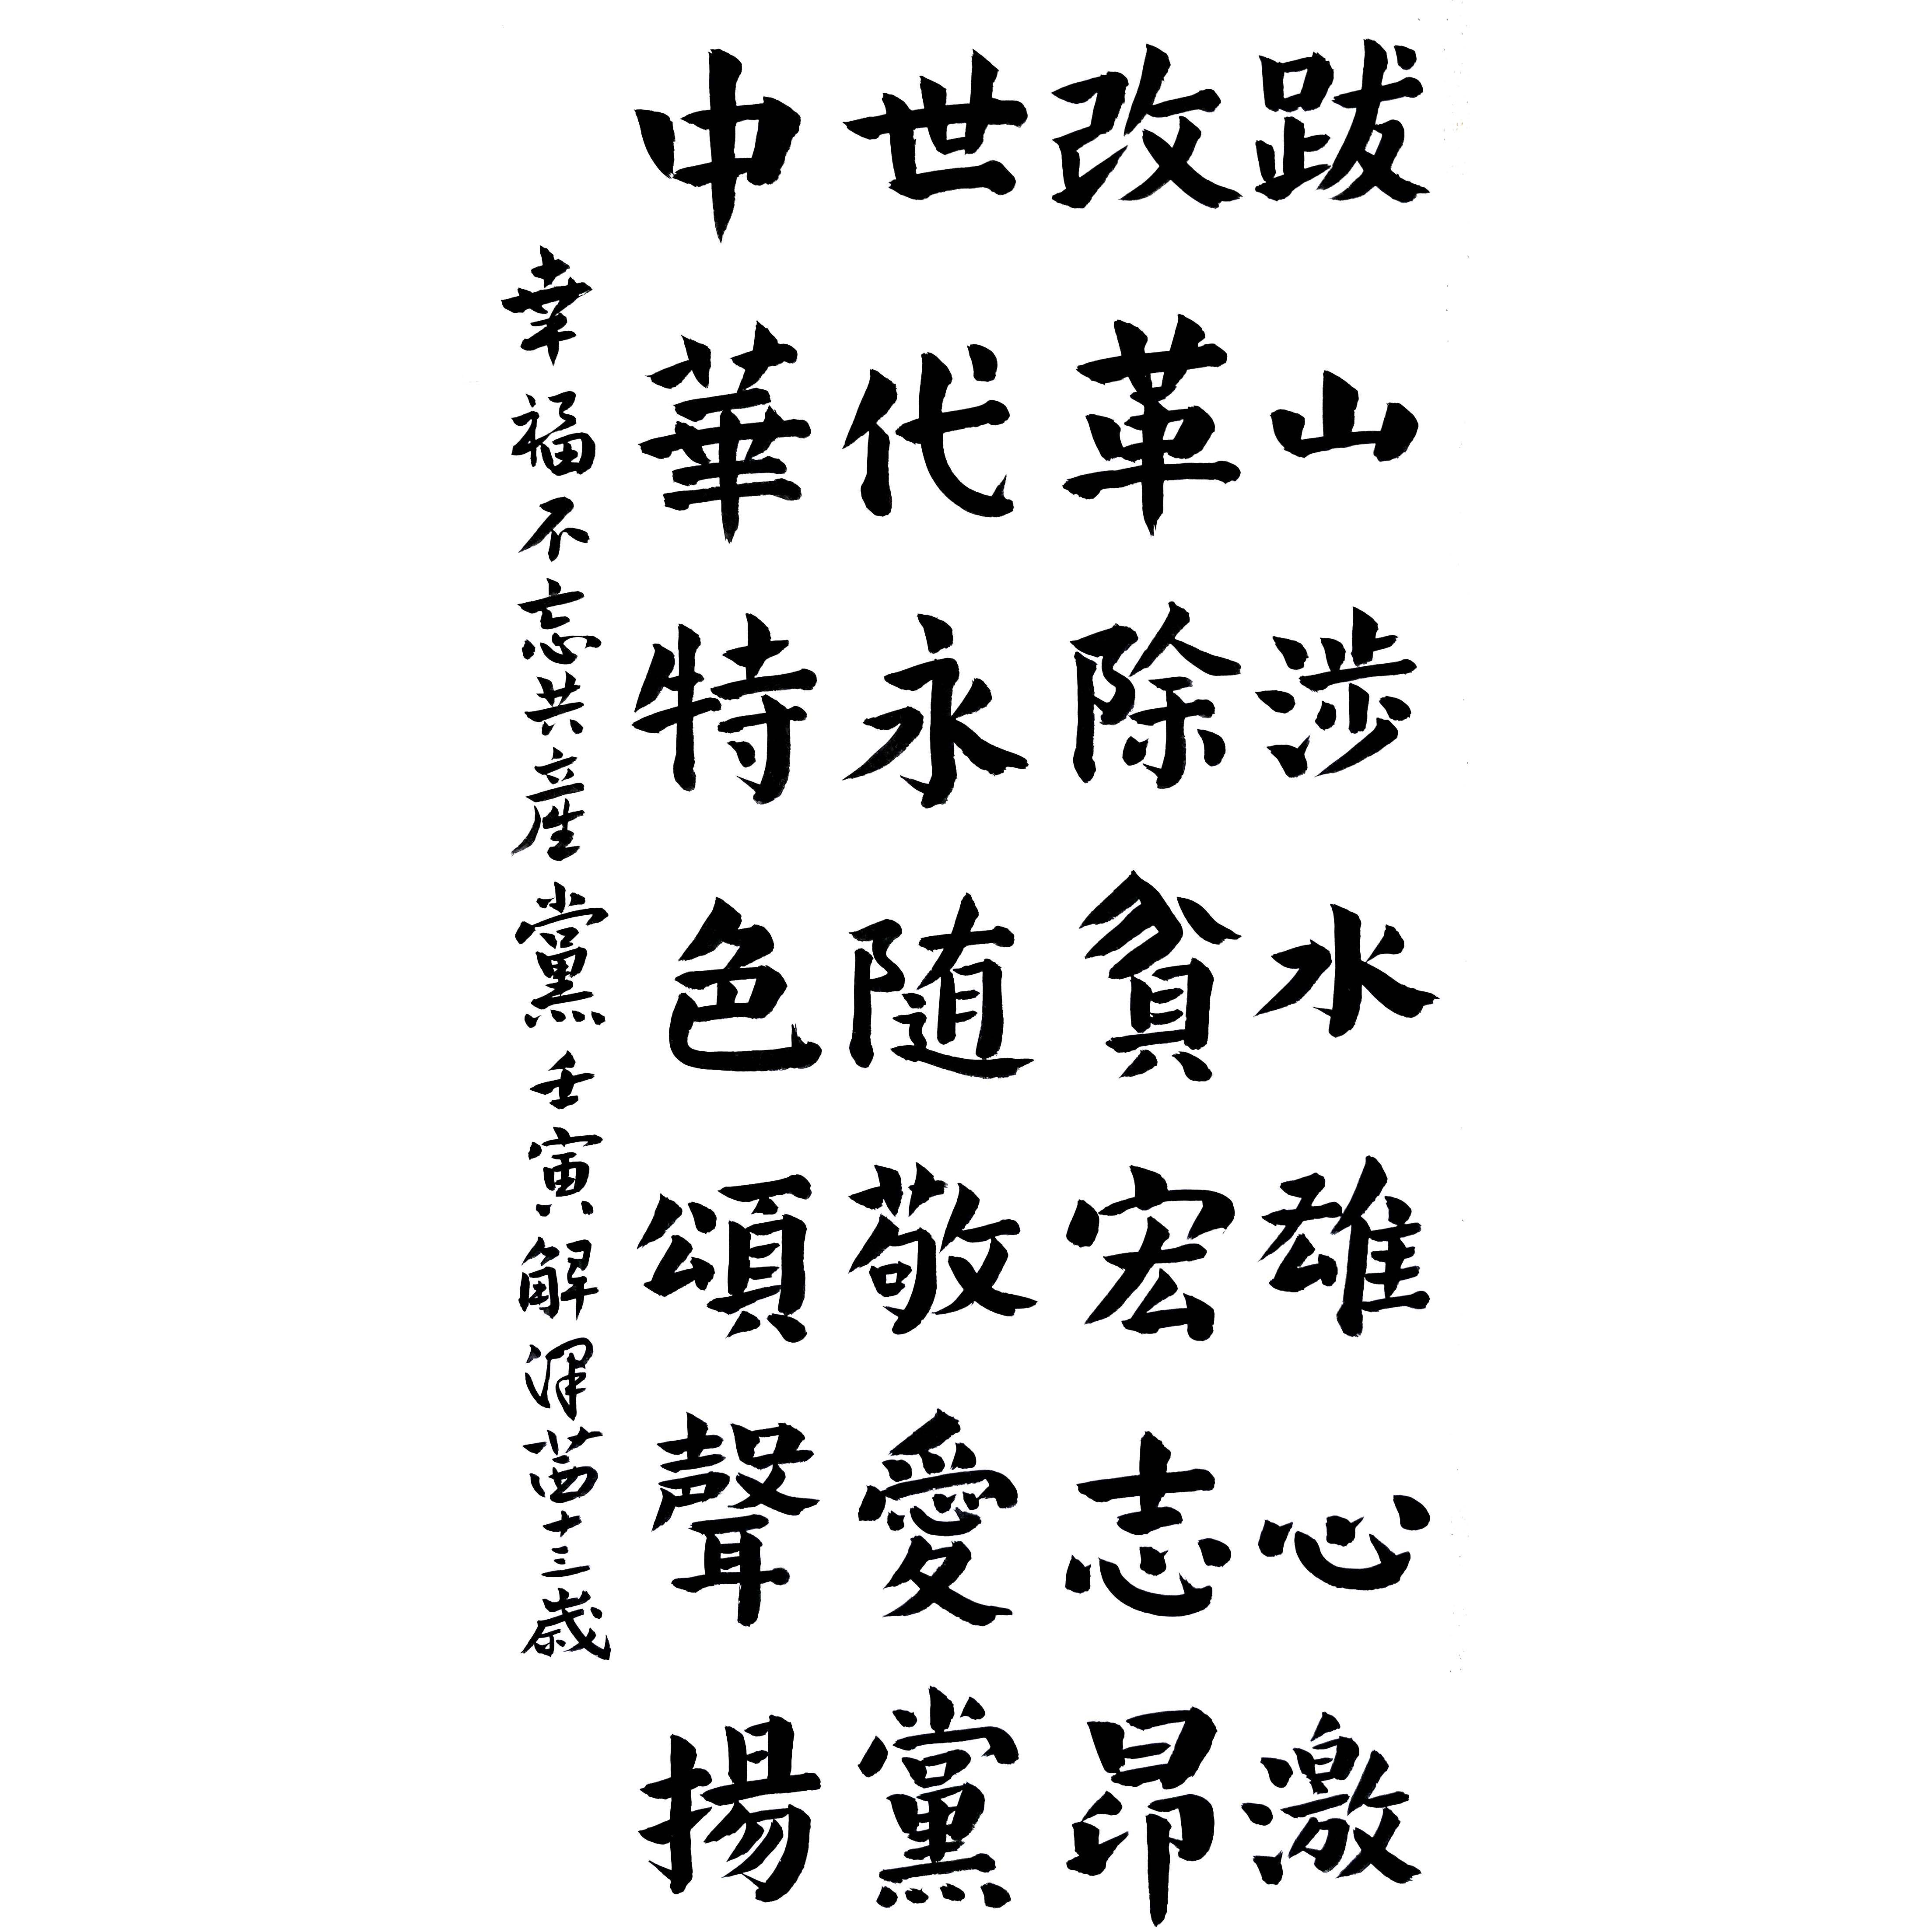 跋山涉水雄心激
改革除貧宏志昂
世代永随敬愛黨
中華特色頌聲揚
幸福不忘共产黨 壬寅 輝 三歲